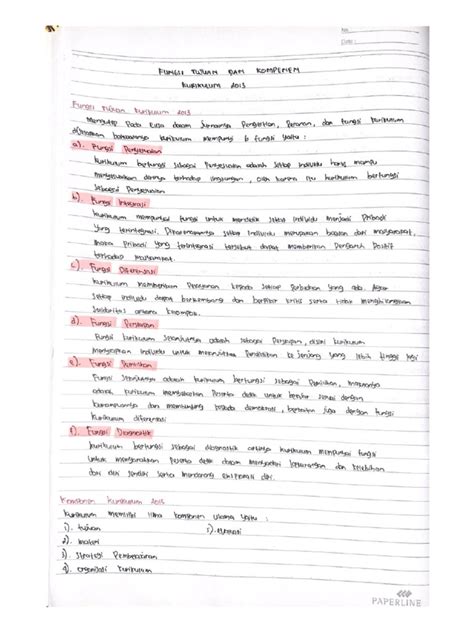 No :
Date :
FUNGSI TUJUAN DAN KOMPONEN
KURIKULUM 2013
Fungsi Tujuan Kurikulum 2013
Mengutip Pada dalam Pengertian, Peranan, dan Fungsi Kurikulum
bahwasanya kurikulum mempunyai 6 fungsi yaitu :
a). Fungsi Penyesuaian
kurikulum berfungsi sebagai Penyesuaian adalah setiap individu harus mampu
menyesuaikan dirinya terhadap lingkungan, oleh karena itu kurikulum berfungsi
sebagai Penyesuaian
b). Fungsi Integrasi
kurikulum mempunyai fungsi untuk mendidik setiap individu menjadi Pribadi
yang terintegrasi. setiap individu merupakan bagian dari masyarakat,
maka Pribadi yang terintegrasi tersebut dapat memberikan Pengaruh Positif
terhadap masyarakat.
c). Fungsi Diferensiasi
kurikulum memberikan Pelayanan kepada setiap Perbedaan yang ada. Agar
setiap individu dapat berkembang dan berfikir kritis serta tidak menghilangkan
Solidaritas antara kelompok.
d). Fungsi Persiapan
Fungsi kurikulum selanjutnya adalah sebagai Persiapan, disini kurikulum
menyiapkan individu untuk melanjutkan Pendidikan ke jenjang yang lebih tinggi lagi
e). Fungsi Pemilihan
Fungsi selanjutnya adalah kurikulum berfungsi sebagai Pemilihan, maksudnya
adalah kurikulum Peserta didik untuk belajar sesuai dengan
kemampuannya dan kepada demokrasi, berkaitan juga dengan fungsi
kurikulum diferensiasi
f). Fungsi Diagnostik
kurikulum berfungsi sebagai diagnostik artinya kurikulum mempunyai fungsi
untuk mengarahkan Peserta didik dalam menyadari kekurangan dan kelebihan
dari diri sendiri serta mendorong diri.
Komponen kurikulum 2013
kurikulum memiliki lima komponen utama yaitu :
1). tujuan 5). evaluasi
2). materi
3). strategi Pembelajaran
4). organisasi kurikulum
PAPERLINE